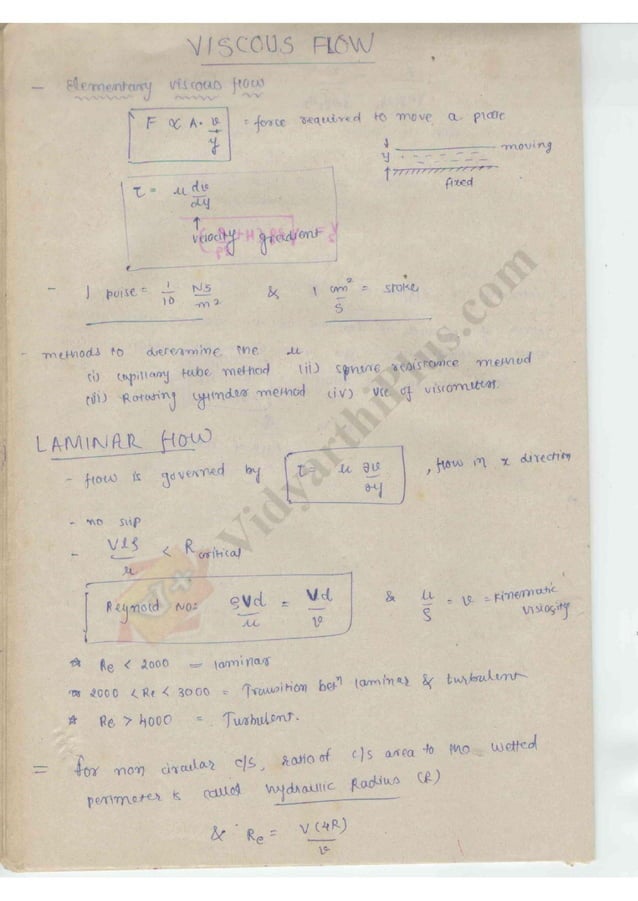 VISCOUS FLOW
- Elementary viscous flow
F ∝ A. v/y = force required to move a plate
moving
y
fixed
τ = μ dv/dy
↑
velocity gradient
- 1 poise = 1/10 NS/m² & 1 cm²/S = stoke
- methods to determine the μ
(i) capillary tube method (ii) sphere resistance method
(iii) Rotating cylinder method (iv) use of viscometers.
LAMINAR FLOW
- flow is governed by τ = μ ∂v/∂y , flow in x direction
- no slip
- Vlρ/μ < Rcritical
Reynold no: ρVd/μ = Vd/ν & μ/ρ = ν = Kinematic viscosity
* Re < 2000 = laminar
* 2000 < Re < 3000 = Transition betⁿ laminar & turbulent
* Re > 4000 = Turbulent.
= for non circular c/s, ratio of c/s area to the wetted
perimeter is called hydraulic Radius (R)
& Re = V(4R)/ν
VidyarthiPlus.com
V+